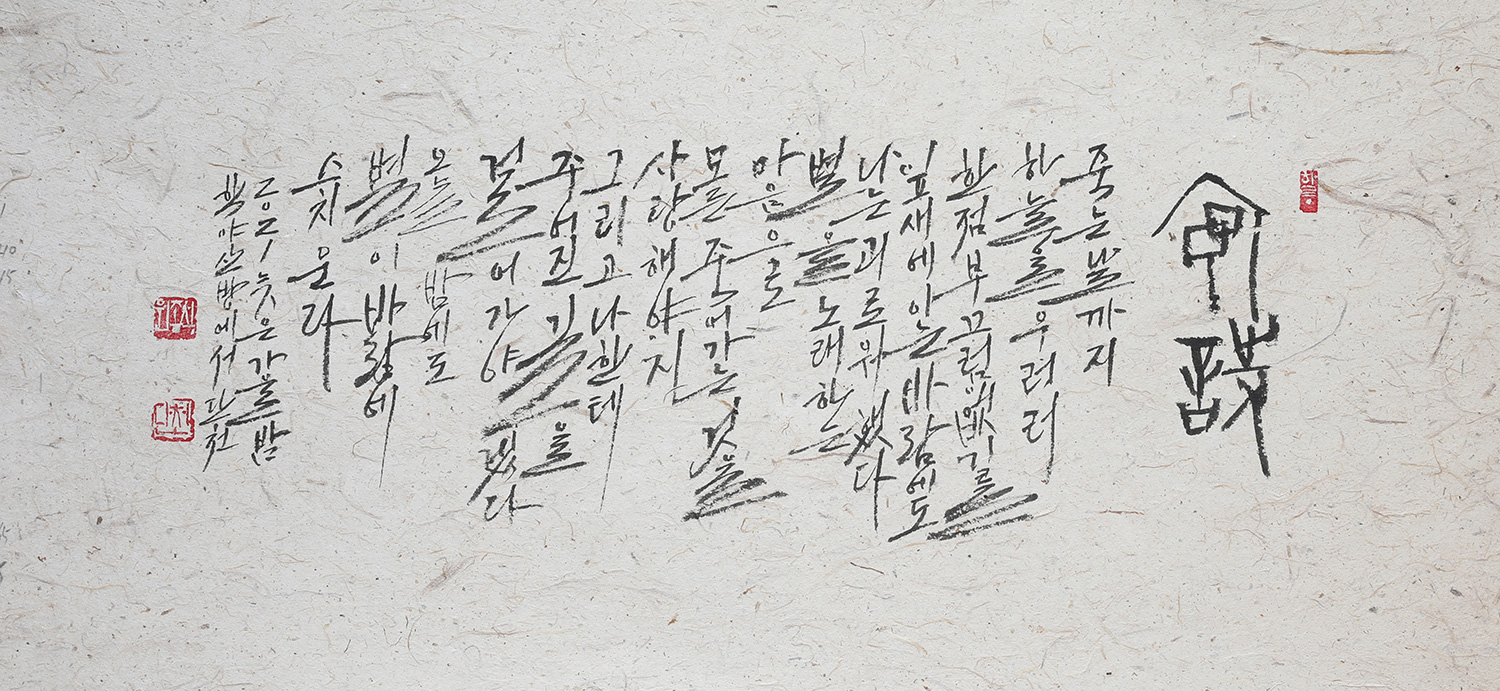 序詩
죽는날까지
하늘을우러러
한점부끄럼없기를
잎새에이는바람에도
나는괴로워했다
별을노래하는
마음으로
모든죽어가는것을
사랑해야지
그리고나한테
주어진길을
걸어가야겠다
오늘밤에도
별이바람에
스치운다
2021늦은가을밤
산방에서 단천
단천